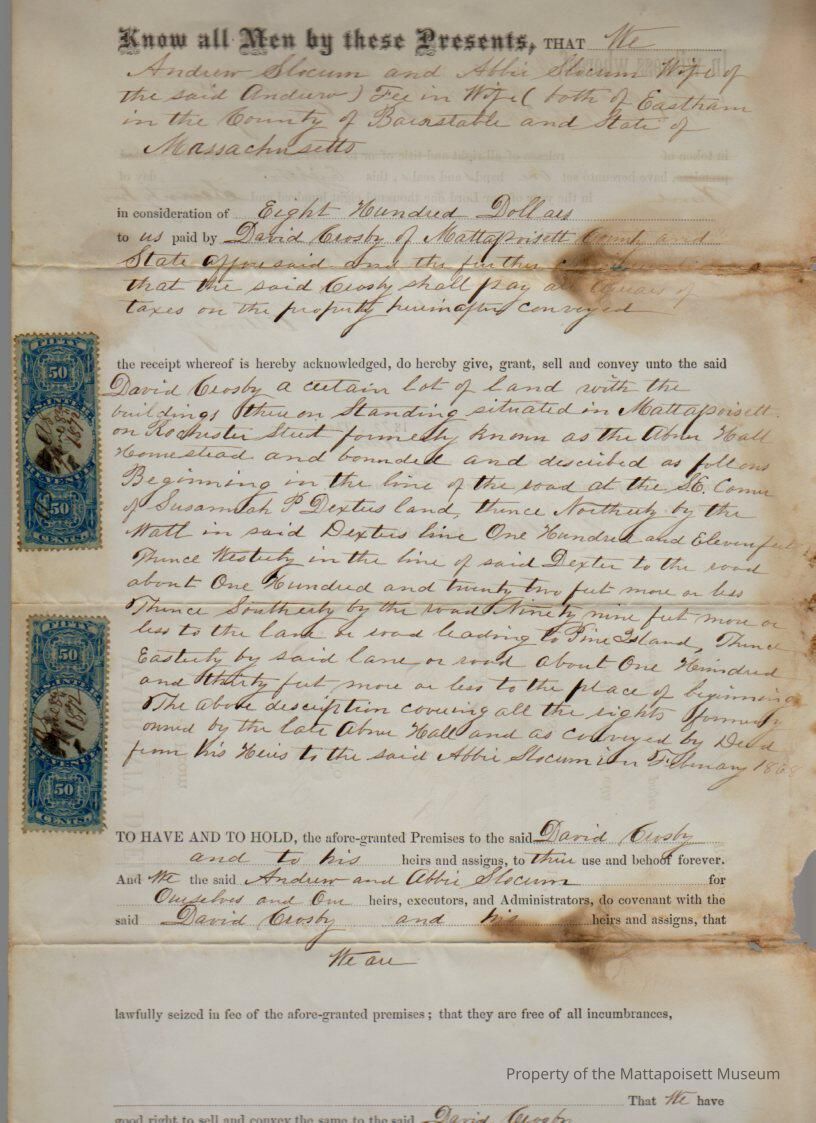 Know all Men by these Presents, THAT We
Andrew Slocum and Abbie Slocum Wife of
the said Andrew) Fee in Wife ( both of Eastham
in the County of Barnstable and State of
Massachusetts
in consideration of Eight Hundred Dollars
to us paid by David Crosby of Mattapoisett County and
State afforesaid and the further
that the said Crosby shall pay all of
taxes on the property hereinafter conveyed
the receipt whereof is hereby acknowledged, do hereby give, grant, sell and convey unto the said
David Crosby a certain lot of land with the
buildings thereon Standing situated in Mattapoisett
on Rochester Street formerly known as the Abner Hall
Homestead and bounded and described as follows
Beginning in the line of the road at the S.E. Corner
of Susannah P Dexters land, thence Northerly by the
Wall in said Dexters line One Hundred and Eleven feet
Thence Westerly in the line of said Dexter to the road
about One Hundred and twenty two feet more or less
Thence Southerly by the road Ninety nine feet more or
less to the lane or road leading to Pine Island, Thence
Easterly by said lane or road about One Hundred
and thirty feet more or less to the place of beginning
The above description covering all the rights formerly
owned by the late Abner Hall and as conveyed by Deed
from his Heirs to the said Abbie Slocum in February 1868
TO HAVE AND TO HOLD, the afore-granted Premises to the said David Crosby
and to his heirs and assigns, to their use and behoof forever.
And We the said Andrew and Abbie Slocum for
Ourselves and Our heirs, executors, and Administrators, do covenant with the
said David Crosby and his heirs and assigns, that
We are
lawfully seized in fee of the afore-granted premises; that they are free of all incumbrances,
That We have
good right to sell and convey the same to the said David Crosby
FIFTY
50
U.S. INTER.
REVENUE
1872
50
CENTS.
FIFTY
50
U.S. INTER.
REVENUE
1872
50
CENTS.
Property of the Mattapoisett Museum